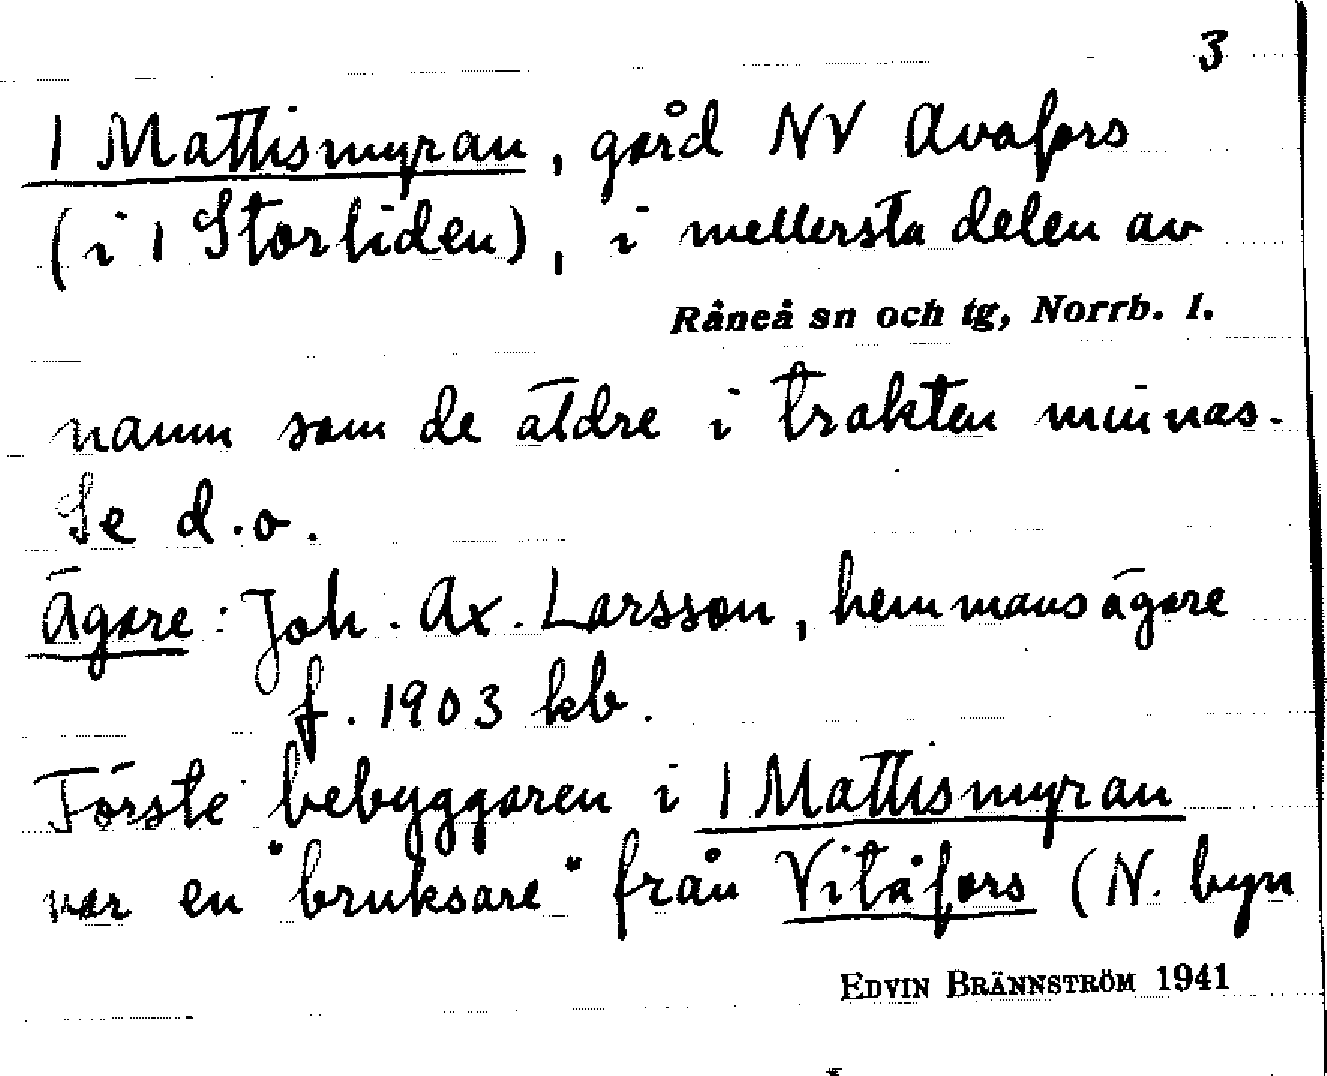 3
1 Mattismyran, gård NV Avafors
(i 1 Storliden), i mellersta delen av
Råneå sn och tg, Norrb. l.
namn som de äldre i trakten minnas.
Se d.o.
Ägare: Joh. Ax. Larsson, hemmansägare
f. 1903 kb.
Förste bebyggaren i 1 Mattismyran
var en "bruksare" från Vitåfors (N. byn
EDVIN BRÄNNSTRÖM 1941